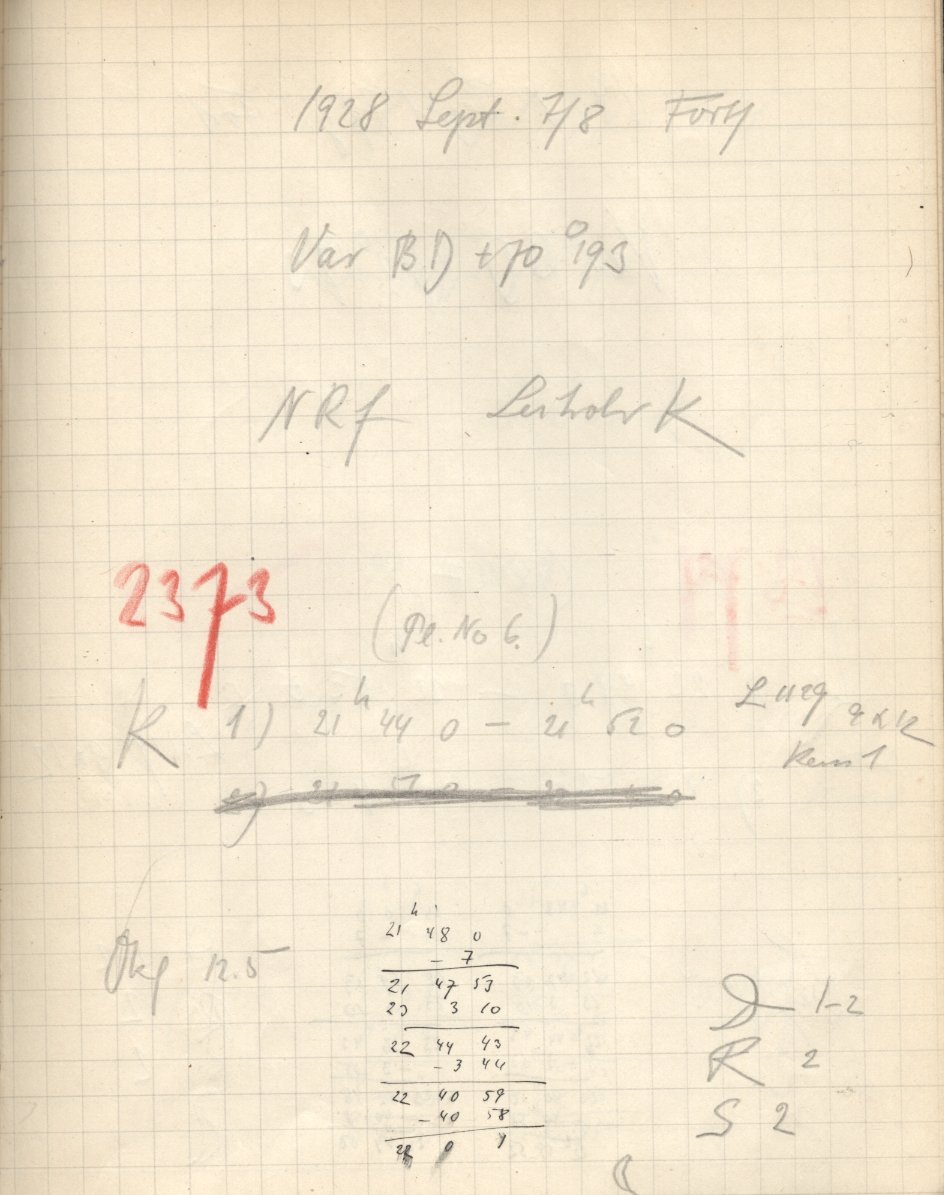 1928 Sept. 7/8 Forts
Var BD +70°193
NRf Leitrohr K
2373
(Pl. No 6.)
K 1) 21h 44 0 – 21h 52 0
9 x 12
Okg 12.5
21h 48 0
– 7
21 47 53
23 3 10
22 44 43
– 3 44
22 40 59
– 40 58
22 0 1
D 1–2
R 2
S 2